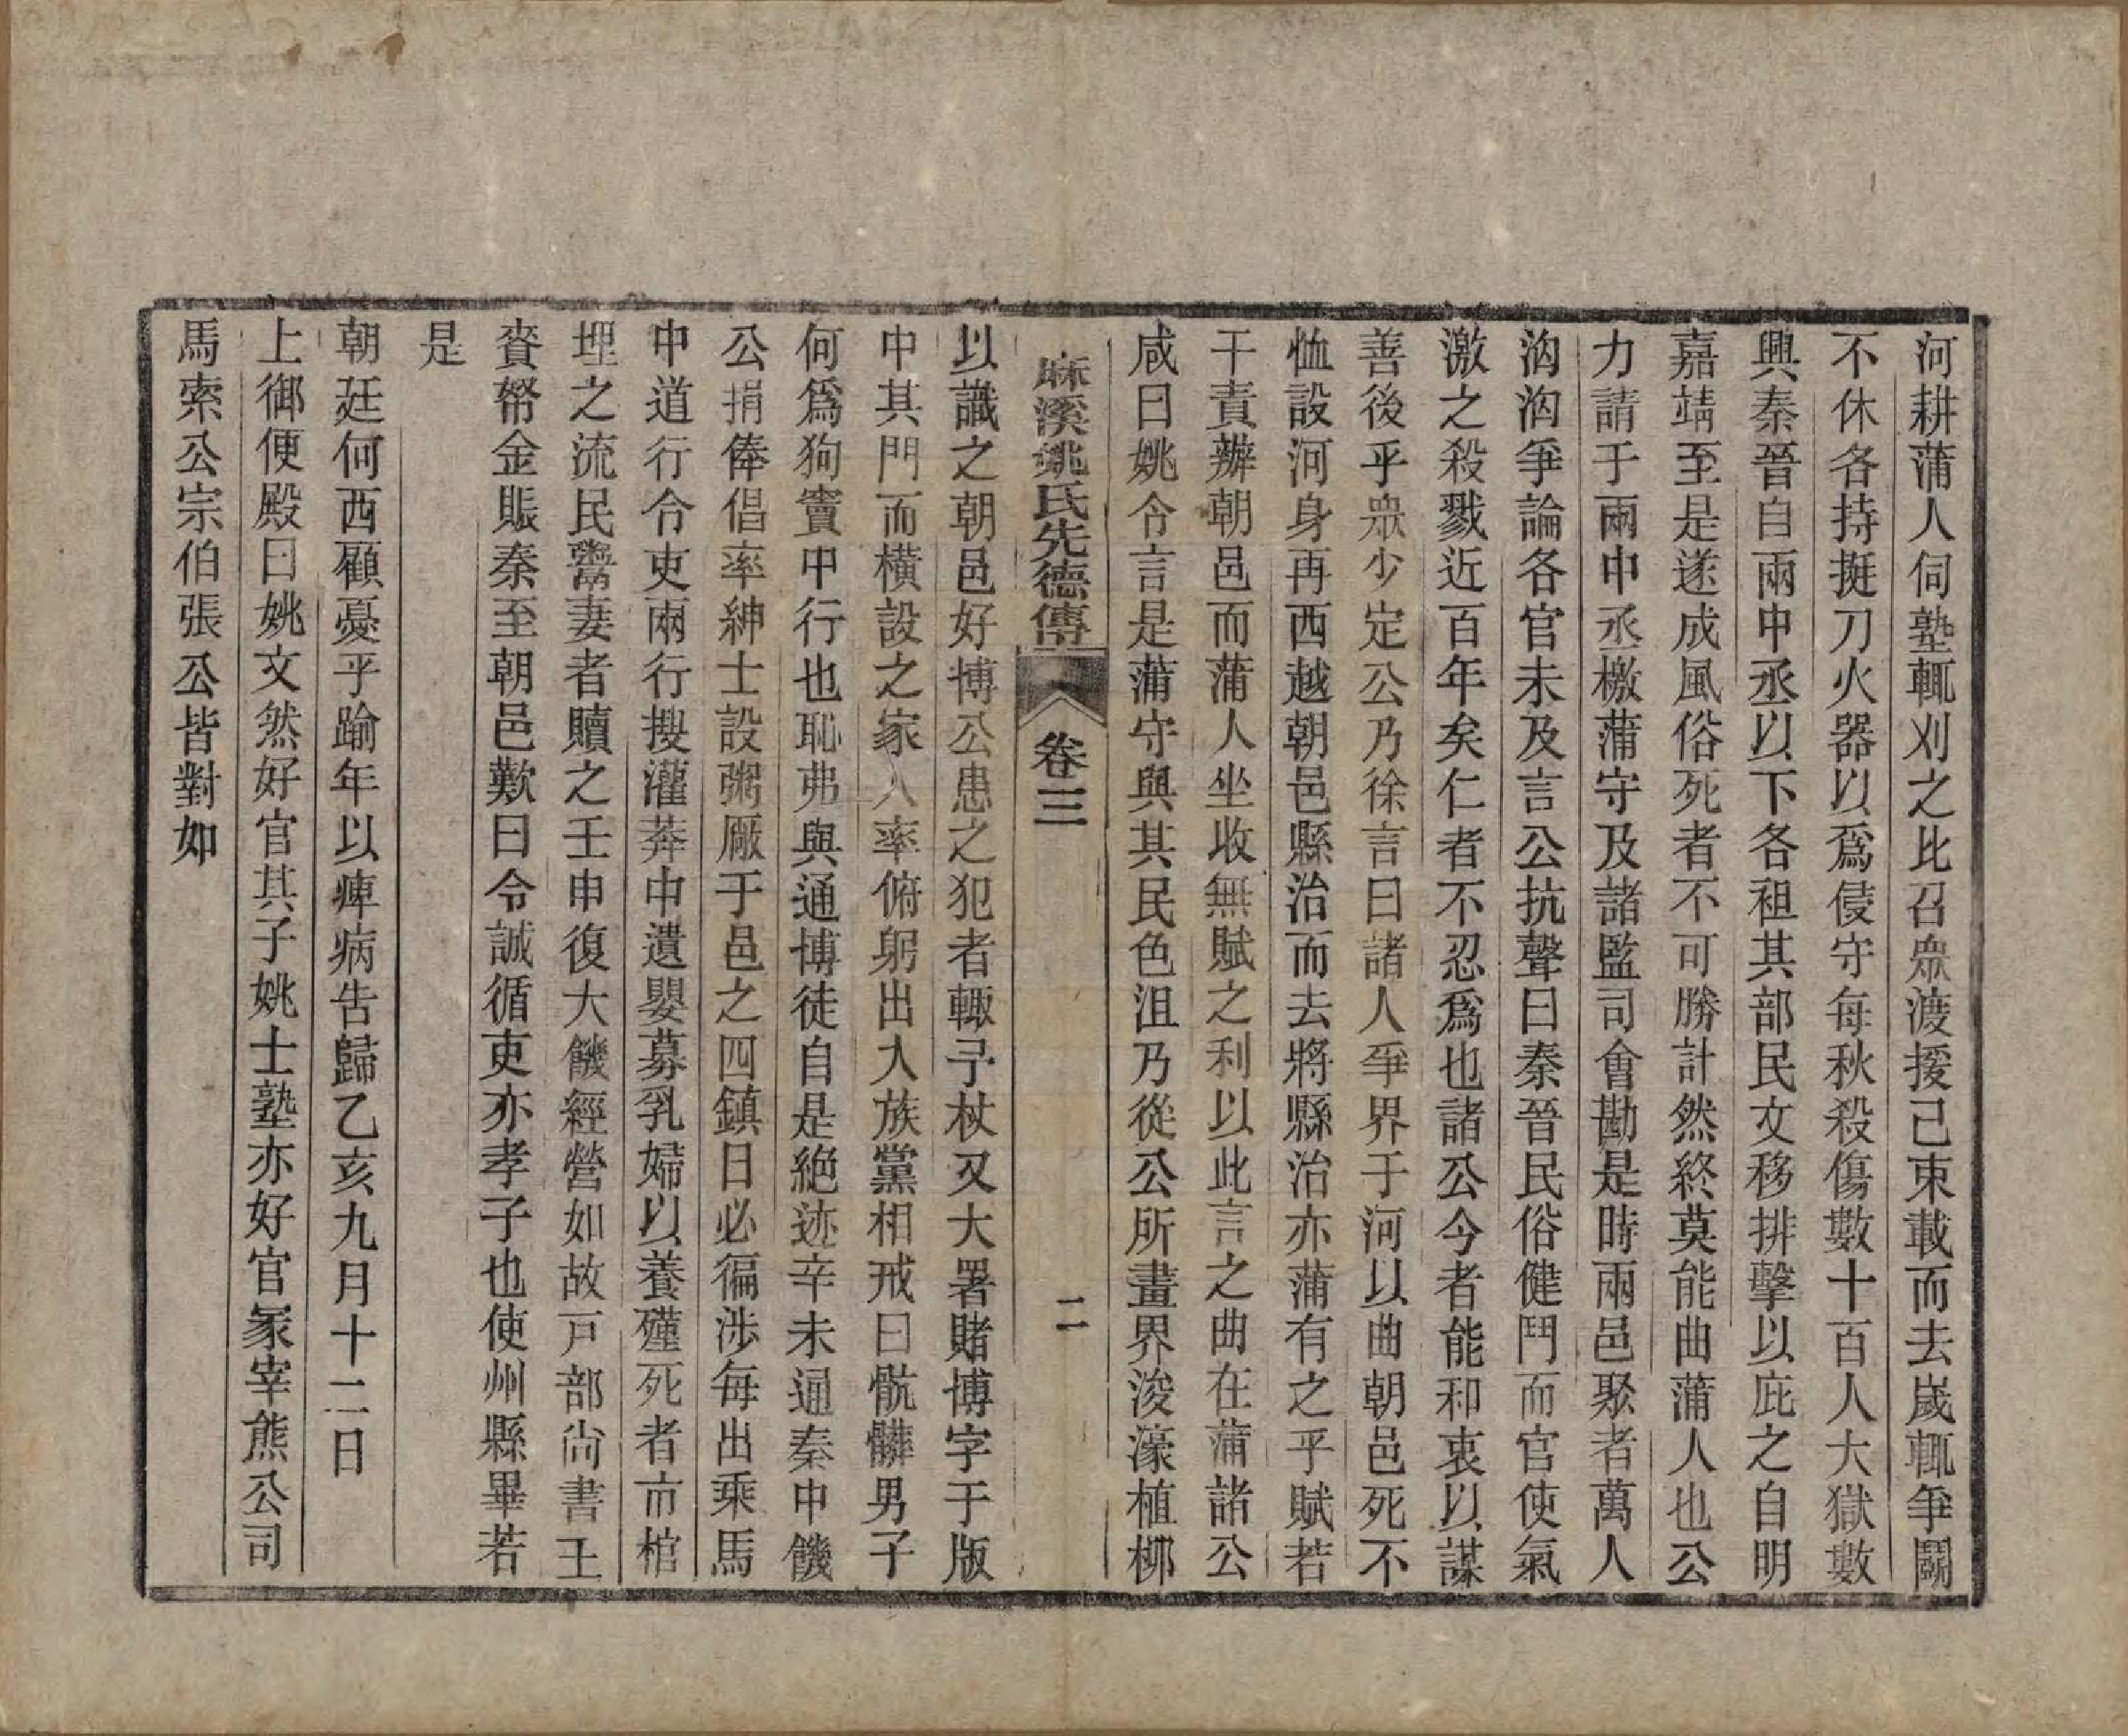 河耕蒲人伺塾輒刈之比召眾渡援已束載而去歲輒爭鬬
不休各持挺刀火器以爲侵守每秋殺傷數十百人大獄數
興秦晉自兩中丞以下各袒其部民文移排擊以庇之自明
嘉靖至是遂成風俗死者不可勝計然終莫能曲蒲人也公
力請于兩中丞檄蒲守及諸監司會勘是時兩邑聚者萬人
洶洶爭論各官未及言公抗聲曰秦晉民俗健鬥而官使氣
激之殺戮近百年矣仁者不忍爲也諸公今者能和衷以謀
善後乎眾少定公乃徐言曰諸人爭界于河以曲朝邑死不
恤設河身再西越朝邑縣治而去將縣治亦蒲有之乎賦若
干責辦朝邑而蒲人坐收無賦之利以此言之曲在蒲諸公
咸曰姚令言是蒲守與其民色沮乃從公所畫界浚濠植柳
麻溪姚氏先德傳 卷三 二
以識之朝邑好博公患之犯者輙予杖又大署賭博字于版
中其門而橫設之家人率俯躬出入族黨相戒曰骯髒男子
何爲狗竇中行也恥弗與通博徒自是絕迹辛未通秦中饑
公捐俸倡率紳士設粥厰于邑之四鎮日必徧涉每出乘馬
中道行令吏兩行搜灌莽中遺嬰募乳婦以養殣死者市棺
埋之流民鬻妻者贖之壬申復大饑經營如故戸部尙書王
賫帑金賑秦至朝邑歎曰令誠循吏亦孝子也使州縣畢若
是
朝廷何西顧憂乎踰年以痺病告歸乙亥九月十二日
上御便殿曰姚文然好官其子姚士塾亦好官冢宰熊公司
馬索公宗伯張公皆對如